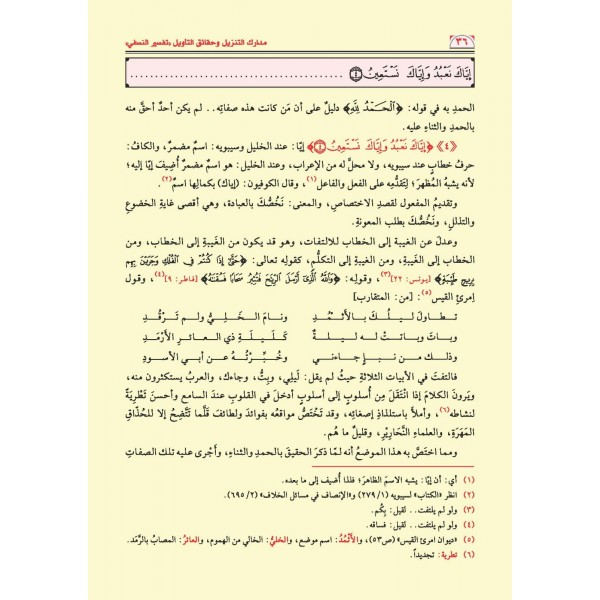 ٣٦
مدارك التنزيل وحقائق التأويل «تفسير النسفي»
إِيَّاكَ نَعْبُدُ وَإِيَّاكَ نَسْتَعِينُ ٤ ............................................
الحمدِ به في قوله: ﴿الْحَمْدُ لِلَّهِ﴾ دليلٌ على أن مَن كانت هذه صفاتِه.. لم يكن أحدٌ أحقَّ منه
بالحمدِ والثناءِ عليه.
«٤» ﴿إِيَّاكَ نَعْبُدُ وَإِيَّاكَ نَسْتَعِينُ ٤﴾ إيَّا: عند الخليل وسيبويه: اسمٌ مضمرٌ، والكاف:
حرفُ خطابٍ عند سيبويه، ولا محلَّ له من الإعراب، وعند الخليل: هو اسمٌ مضمرٌ أُضِيفَ إيَّا إليه؛
لأنه يشبهُ المُظهرَ؛ لِتَقدُّمِه على الفعل والفاعل(١)، وقال الكوفيون: (إياك) بكمالِها اسمٌ(٢).
وتقديمُ المفعولِ لقصدِ الاختصاصِ، والمعنى: نَخُصُّكَ بالعبادة، وهي أقصى غايةِ الخضوعِ
والتذللِ، ونَخُصُّكَ بطلب المعونةِ.
وعدلَ عن الغيبة إلى الخطاب للالتفات، وهو قد يكون من الغَيبةِ إلى الخطاب، ومن
الخطاب إلى الغَيبةِ، ومن الغيبة إلى التكلُّمِ، كقولِه تعالى: ﴿حَتَّىٰ إِذَا كُنتُمْ فِي الْفُلْكِ وَجَرَيْنَ بِهِم
بِرِيحٍ طَيِّبَةٍ﴾ [يونس: ٢٢](٣)، وقولِه: ﴿وَاللَّهُ الَّذِي أَرْسَلَ الرِّيَاحَ فَتُثِيرُ سَحَابًا فَسُقْنَاهُ﴾ [فاطر: ٩](٤)، وقول
امرئِ القيس(٥): [من: المتقارب]
تـطـاولَ لـيـلُـكَ بـالأَثْـمُـدِ ونـامَ الـخَـلِـيُّ ولـم تَـرْقُـدِ
وبـاتَ وبـاتـتْ لـه لـيـلـةٌ كَـلَـيـلَـةِ ذي الـعـائـرِ الأَرْمَـدِ
وذلـك مـن نـبـإٍ جـاءنـي وخُـبِّـرْتُـهُ عـن أبـي الأسـودِ
فالتفتَ في الأبيات الثلاثةِ حيثُ لم يقل: لَيلِي، وبِتُّ، وجاءَك، والعربُ يستكثِرون منه،
ويَرونَ الكلامَ إذا انْتَقَلَ مِن أُسلوبٍ إلى أسلوبٍ أدخلَ في القلوبِ عندَ السامع وأحسنَ تَطْرِيَةً
لنشاطِه(٦)، وأملأَ باستلذاذِ إصغائِه، وقد تَخْتَصُّ مواقعُه بفوائدَ ولطائفَ قَلَّما تَتَّضِحُ إلا للحُذَّاقِ
المَهَرَةِ، والعلماءِ النَّحارِيْرِ، وقليلٌ ما هُم.
ومما اختَصَّ به هذا الموضعُ أنه لمَّا ذكرَ الحقيقَ بالحمدِ والثناءِ، وأَجْرى عليه تلك الصفاتِ
(١) أي: أن إيَّا: يشبه الاسمَ الظاهرَ؛ فلذا أُضيف إلى ما بعده.
(٢) انظر «الكتاب» لسيبويه (١/ ٢٧٩) و«الإنصاف في مسائل الخلاف» (٢/ ٦٩٥).
(٣) ولو لم يلتفت.. لقيل: بِكُم.
(٤) ولو لم يلتفت.. لقيل: فساقه.
(٥) «ديوان امرئ القيس» (ص٥٣)، والأَثْمُدُ: اسم موضع، والخليُّ: الخالي من الهموم، والعائرُ: المصابُ بالرَّمَد.
(٦) تطرية: تجديداً.